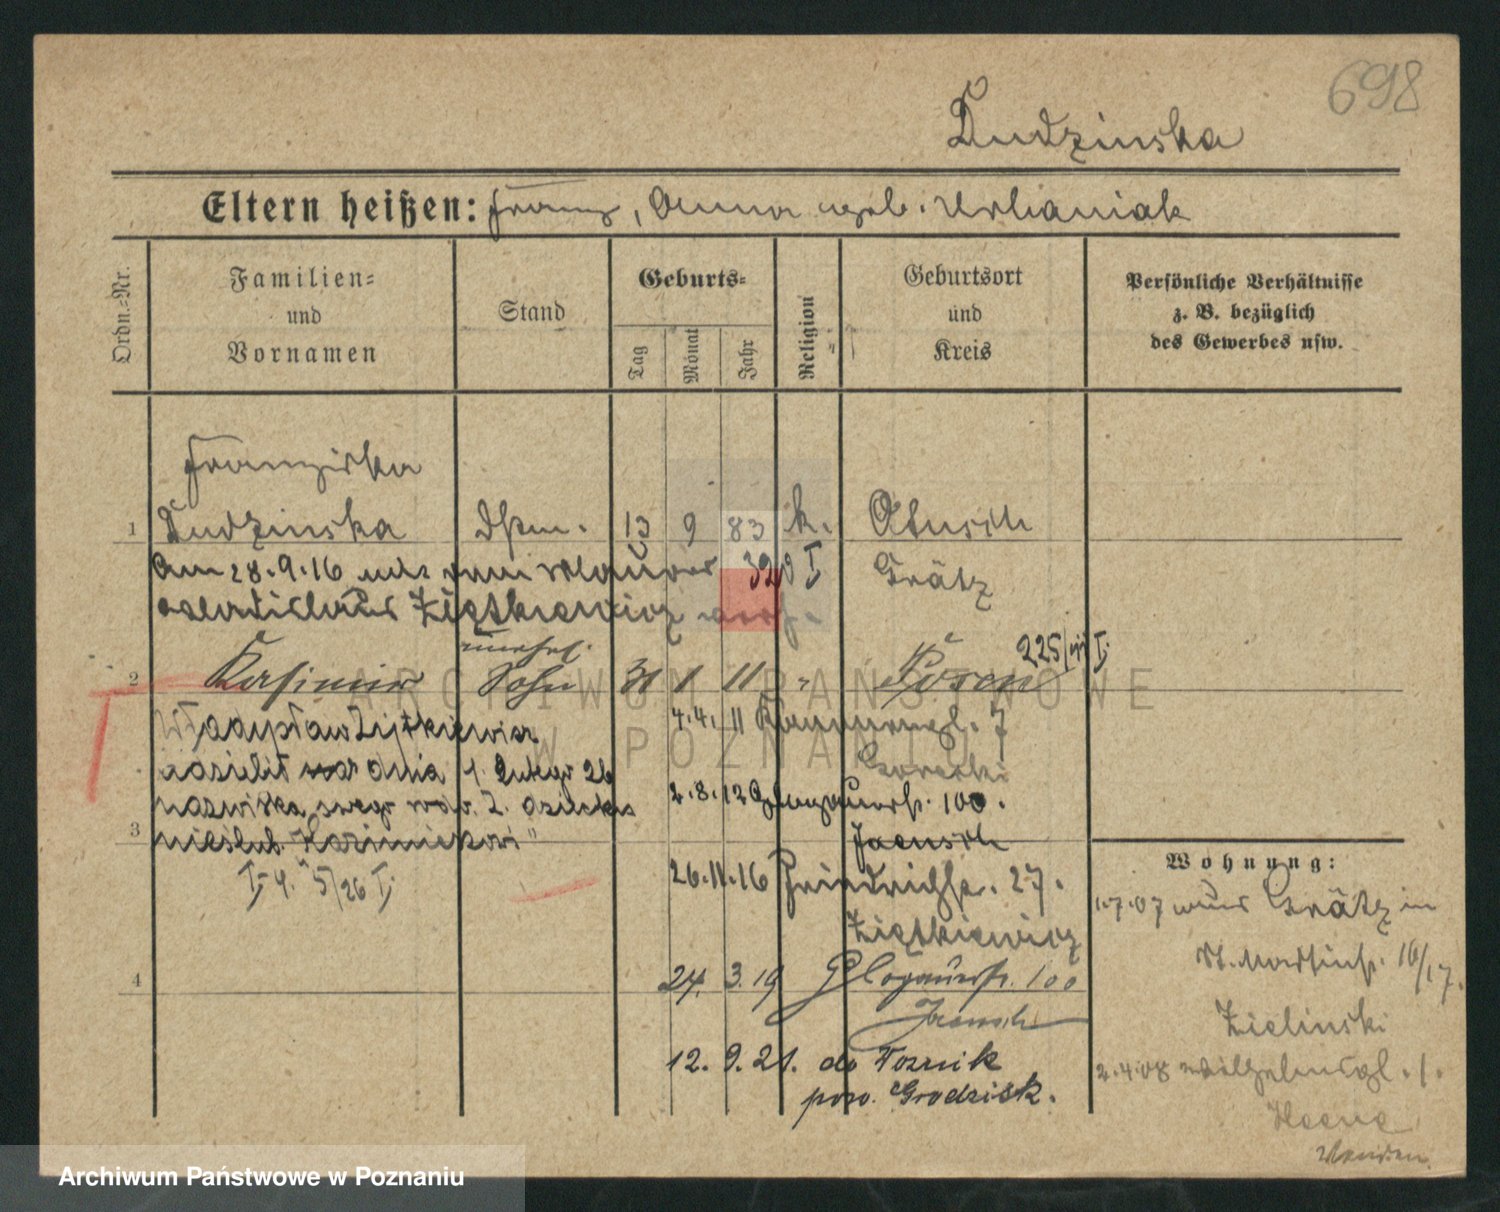 698
Dudzinska
Eltern heißen: Franz, Anna geb. Urbaniak
Ordn.-Nr.
Familien-
und
Vornamen
Stand
Geburts-
Tag
Monat
Jahr
Religion
Geburtsort
und
Kreis
Persönliche Verhältnisse
z. B. bezüglich
des Gewerbes usw.
Franziska
1 Dudzinska 13 9 83 k. Otusch
Am 28.9.16 mit dem Maurer 320 I Grätz
Wladislaus Ziętkiewicz
unehel. 225 I
2 Kasimir Sohn 31 1 11 " Posen
Władysław Ziętkiewicz 4.4. 11 7
dnia 1. lutego 26
nazwiska swego 2.8.12 Glogauerstr. 100.
3 nieślub. Kazimierzowi" Jaensch
I 4. 5/26 I 26.11.16 Friedrichstr. 27.
Ziętkiewicz
4 24. 3. 19 Glogauerstr. 100
Jaensch
12. 9. 21. do
pow. Grodzisk.
Wohnung:
1.7.07 von Grätz in
St. Martinstr. 16/17.
Zielinski
2.4.08 Wilhelmspl. 1.
ARCHIWUM PAŃSTWOWE
W POZNANIU
Archiwum Państwowe w Poznaniu